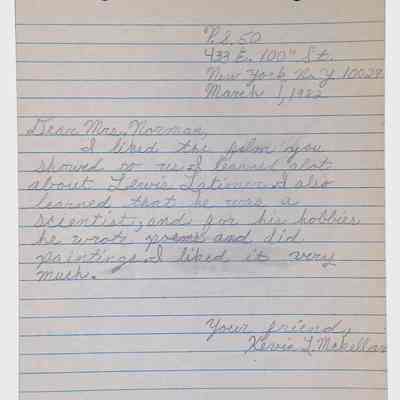 P.S. 50
433 E. 100th St.
New York, N.Y. 10029
March 1, 1982
Dear Mrs. Norman,
I liked the film you
showed to us. I learned alot
about Lewis Latimer. I also
learned that he was a
scientist, and for his hobbies
he wrote poems and did
paintings. I liked it very
much.
Your friend,
Kevin L. McKellar